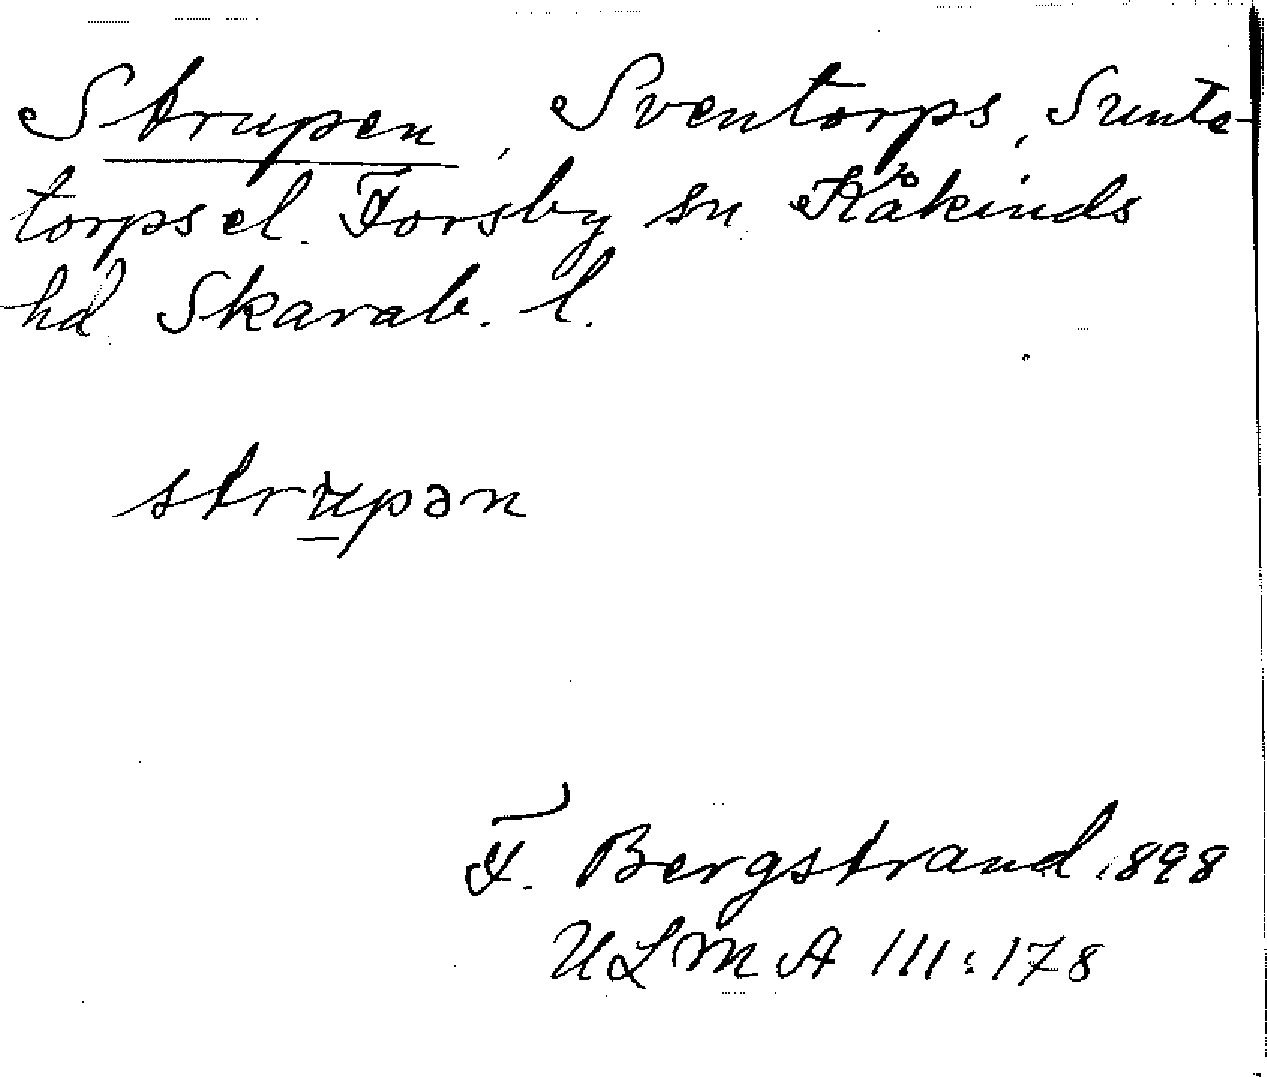 Strupen, Sventorps, Sunte-
torps el. Forsby sn Kåkinds
hd Skarab. l.
strupən
F. Bergstrand 1898
ULMA 111:178